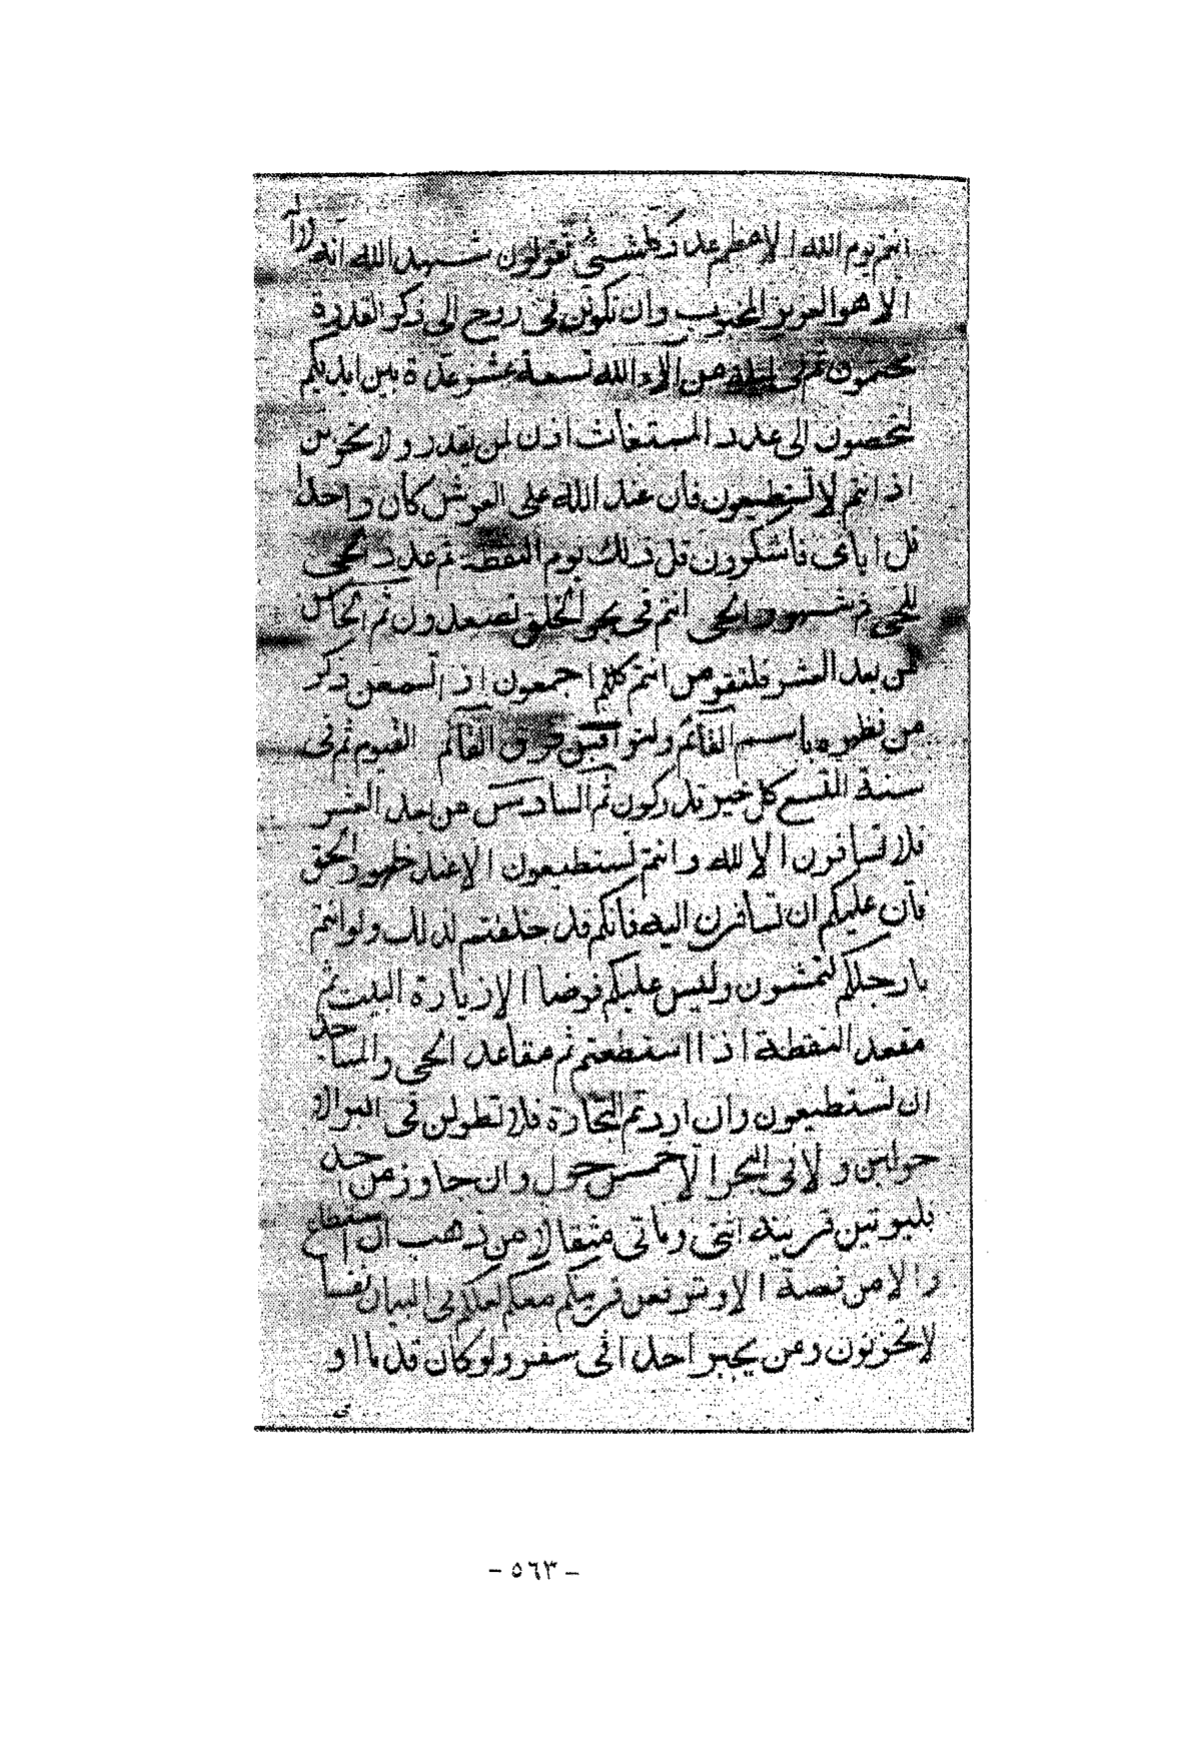 انتم يوم الله الاعظم عدد كلشئ تقولون شهد الله انه لا اله
الا هو العزيز المحبوب وان تكونن في روح الى ذكر القدرة
تختمون ثم في ليلة من الاء الله تسعة عشر عدة بين ايديكم
لتحصون الى عدد المستغاث اذن لمن يقدر ولا تحزنن
اذا انتم لا تستطيعون فأن عند الله على العرش كأن واحدا
قل اياى فاشكرون قل ذلك يوم النقطة ثم عدد الحي
للحي ثم شهور الحي انتم في بحر الخلق تصعدون ثم الخامس
من بعد العشر فلتقومن انتم كلكم اجمعون اذا تسمعن ذكر
من نظهره باسم القائم ولتراقبن فرق القائم القيوم ثم في
سنة التسع كل خير تدركون ثم السادس من بعد العشر
فلا تسافرون الا لله وانتم تستطيعون الا عند ظهور الحق
فأن عليكم ان تسافرن اليه فانكم قد خلقتم لذلك ولو انتم
بارجلكم لتمشون وليس عليكم فرضا الا زيارة البيت ثم
مقعد النقطة اذا استطعتم ثم مقاعد الحي والمساجد
ان تستطيعون وان اردتم التجارة فلا تطولن في البر الا
حولين ولا في البحر الا خمس حول وان جاوز من احد
فليوتين قرينه اثنى ومأتى مثقالا من ذهب ان استطاع
والا من فضة الا وترفعن قرينكم معكم لعلكم في البيان نفسا
لا تحزنون ومن يجبر احدا في سفر ولو كان قدما او
ـى
- ٥٦٣ -